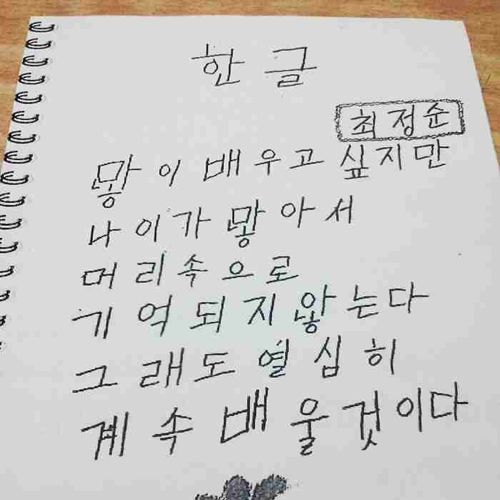 한글
최정순
많이 배우고 싶지만
나이가 많아서
머리속으로
기억되지 않는다
그래도 열심히
계속 배울것이다